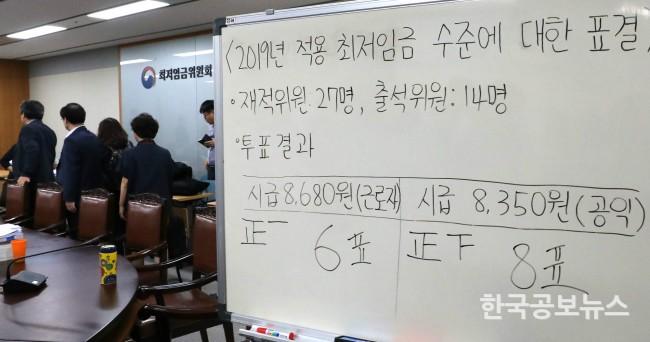 최저임금위원회
<2019년 적용 최저임금 수준에 대한 표결>
· 재적위원: 27명, 출석위원: 14명
· 투표결과
시급 8,680원(근로자) 시급 8,350원(공익)
正一 6표 正下 8표
한국공보뉴스